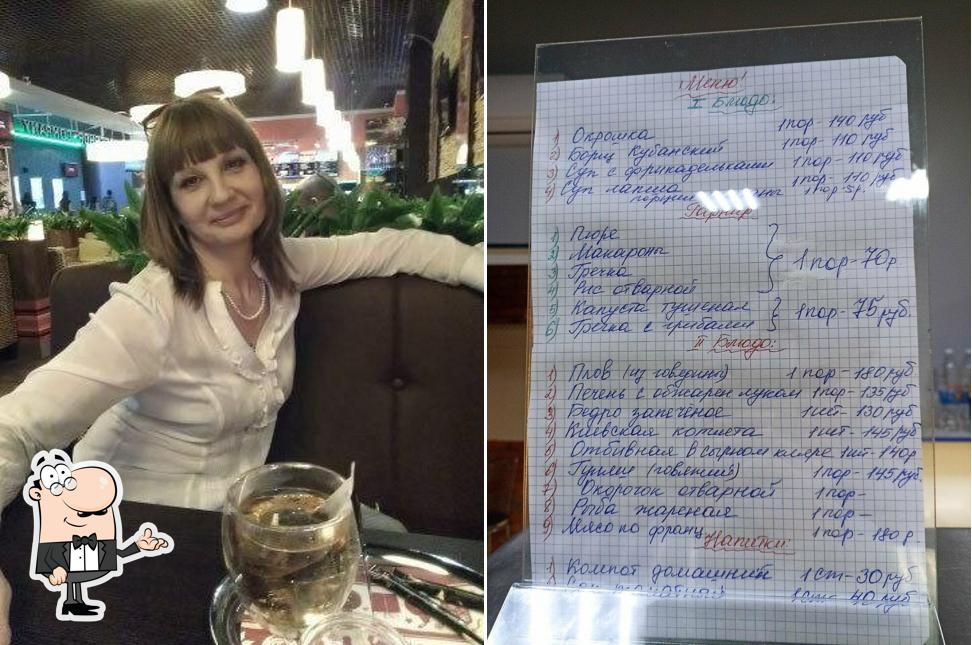 Меню!
I Блюдо:
1) Окрошка 1 пор - 140 руб
2) Борщ Кубанский 1 пор - 110 руб
3) Суп с фрикадельками 1 пор - 110 руб
4) Суп лапша 1 пор - 110 руб
порции 1 пор - 5р.
Гарнир
1) Пюре
2) Макароны
3) Гречка
4) Рис отварной
1 пор - 70 р
5) Капуста тушеная
6) Гречка с грибами
1 пор - 75 руб.
II Блюдо:
1) Плов (из говядины) 1 пор - 180 руб
2) Печень с обжарен луком 1 пор - 135 руб
3) Бедро запечёное 1 шт - 130 руб
4) Киевская котлета 1 шт - 145 руб
5) Отбивная в сырном кляре 1 шт - 140р
6) Гуляш (говяжий) 1 пор - 145 руб.
7) Окорочок отварной 1 пор -
8) Рыба жареная 1 пор -
9) Мясо по франц 1 пор - 180 р
Напитки:
1) Компот домашний 1 ст - 30 руб
Сок томатный 1 ст - 40 руб